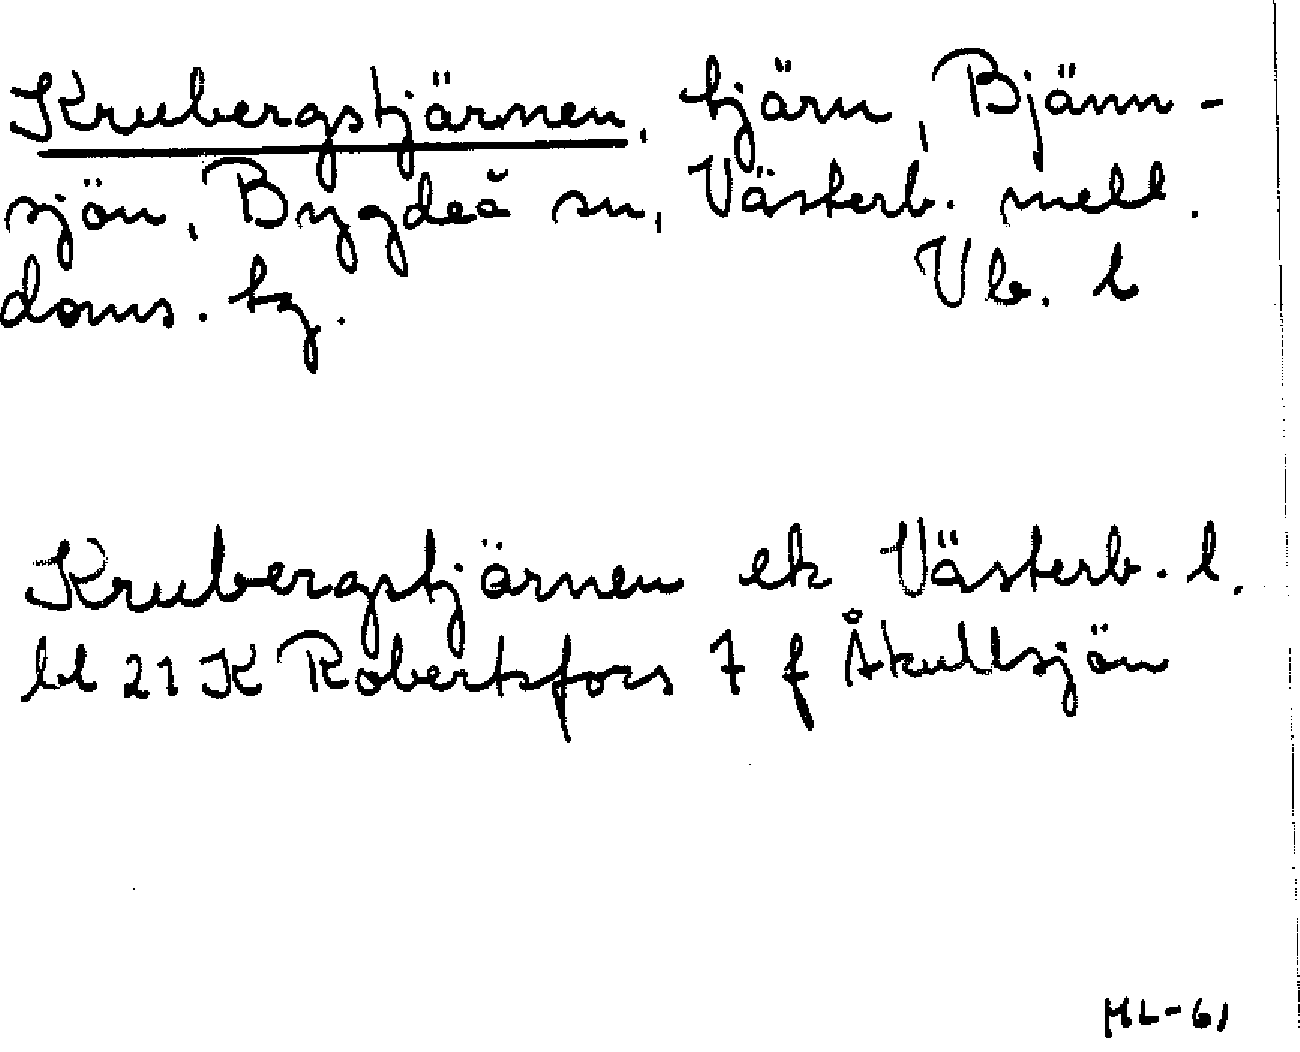 Krubergstjärnen, tjärn, Bjänn-
sjön, Bygdeå sn, Västerb. mell.
doms. tg. Vb. l
Krubergstjärnen ek Västerb. l.
bl 21 K Robertsfors 7 f Åkullsjön
ML-61